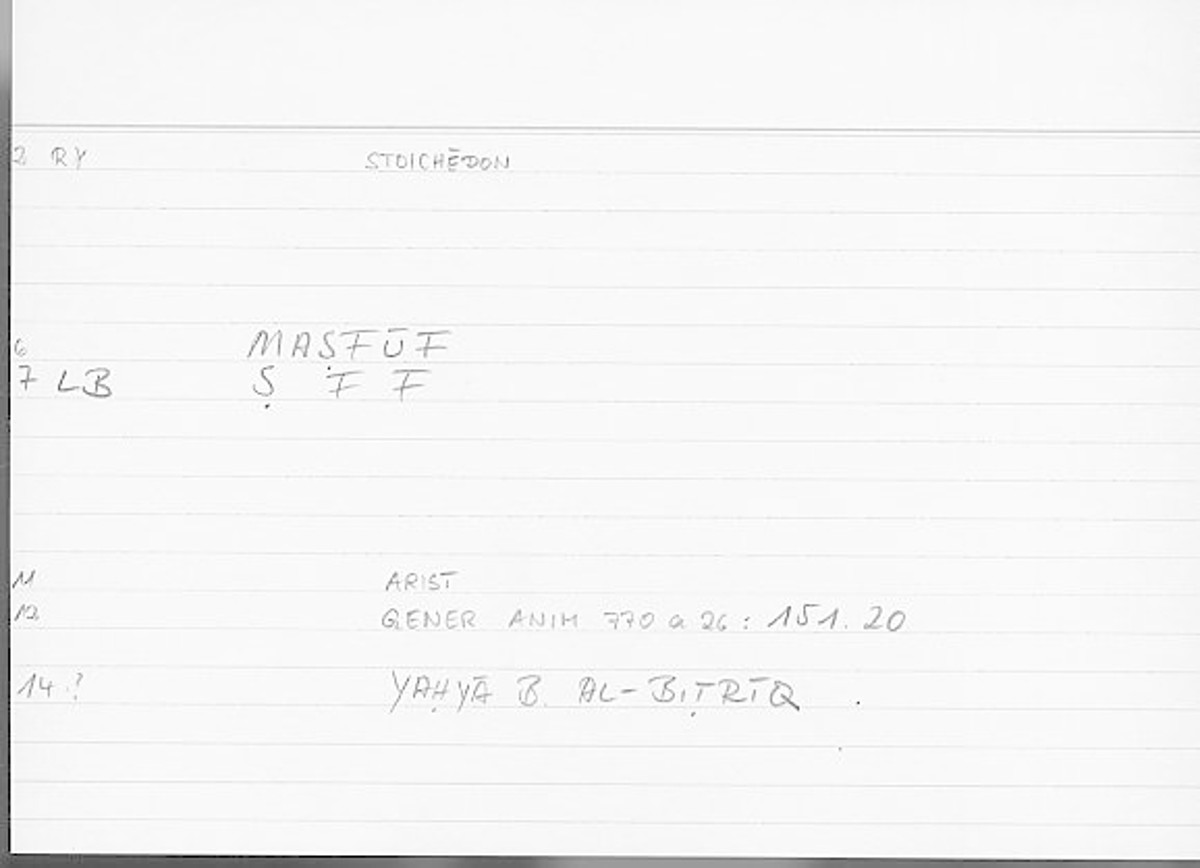 2 RY STOICHĒDON
6 MAṢFŪF
7 LB Ṣ F F
11 ARIST
12 GENER ANIM 770 a 26 : 151.20
14 ? YAḤYĀ B. AL-BIṬRĪQ